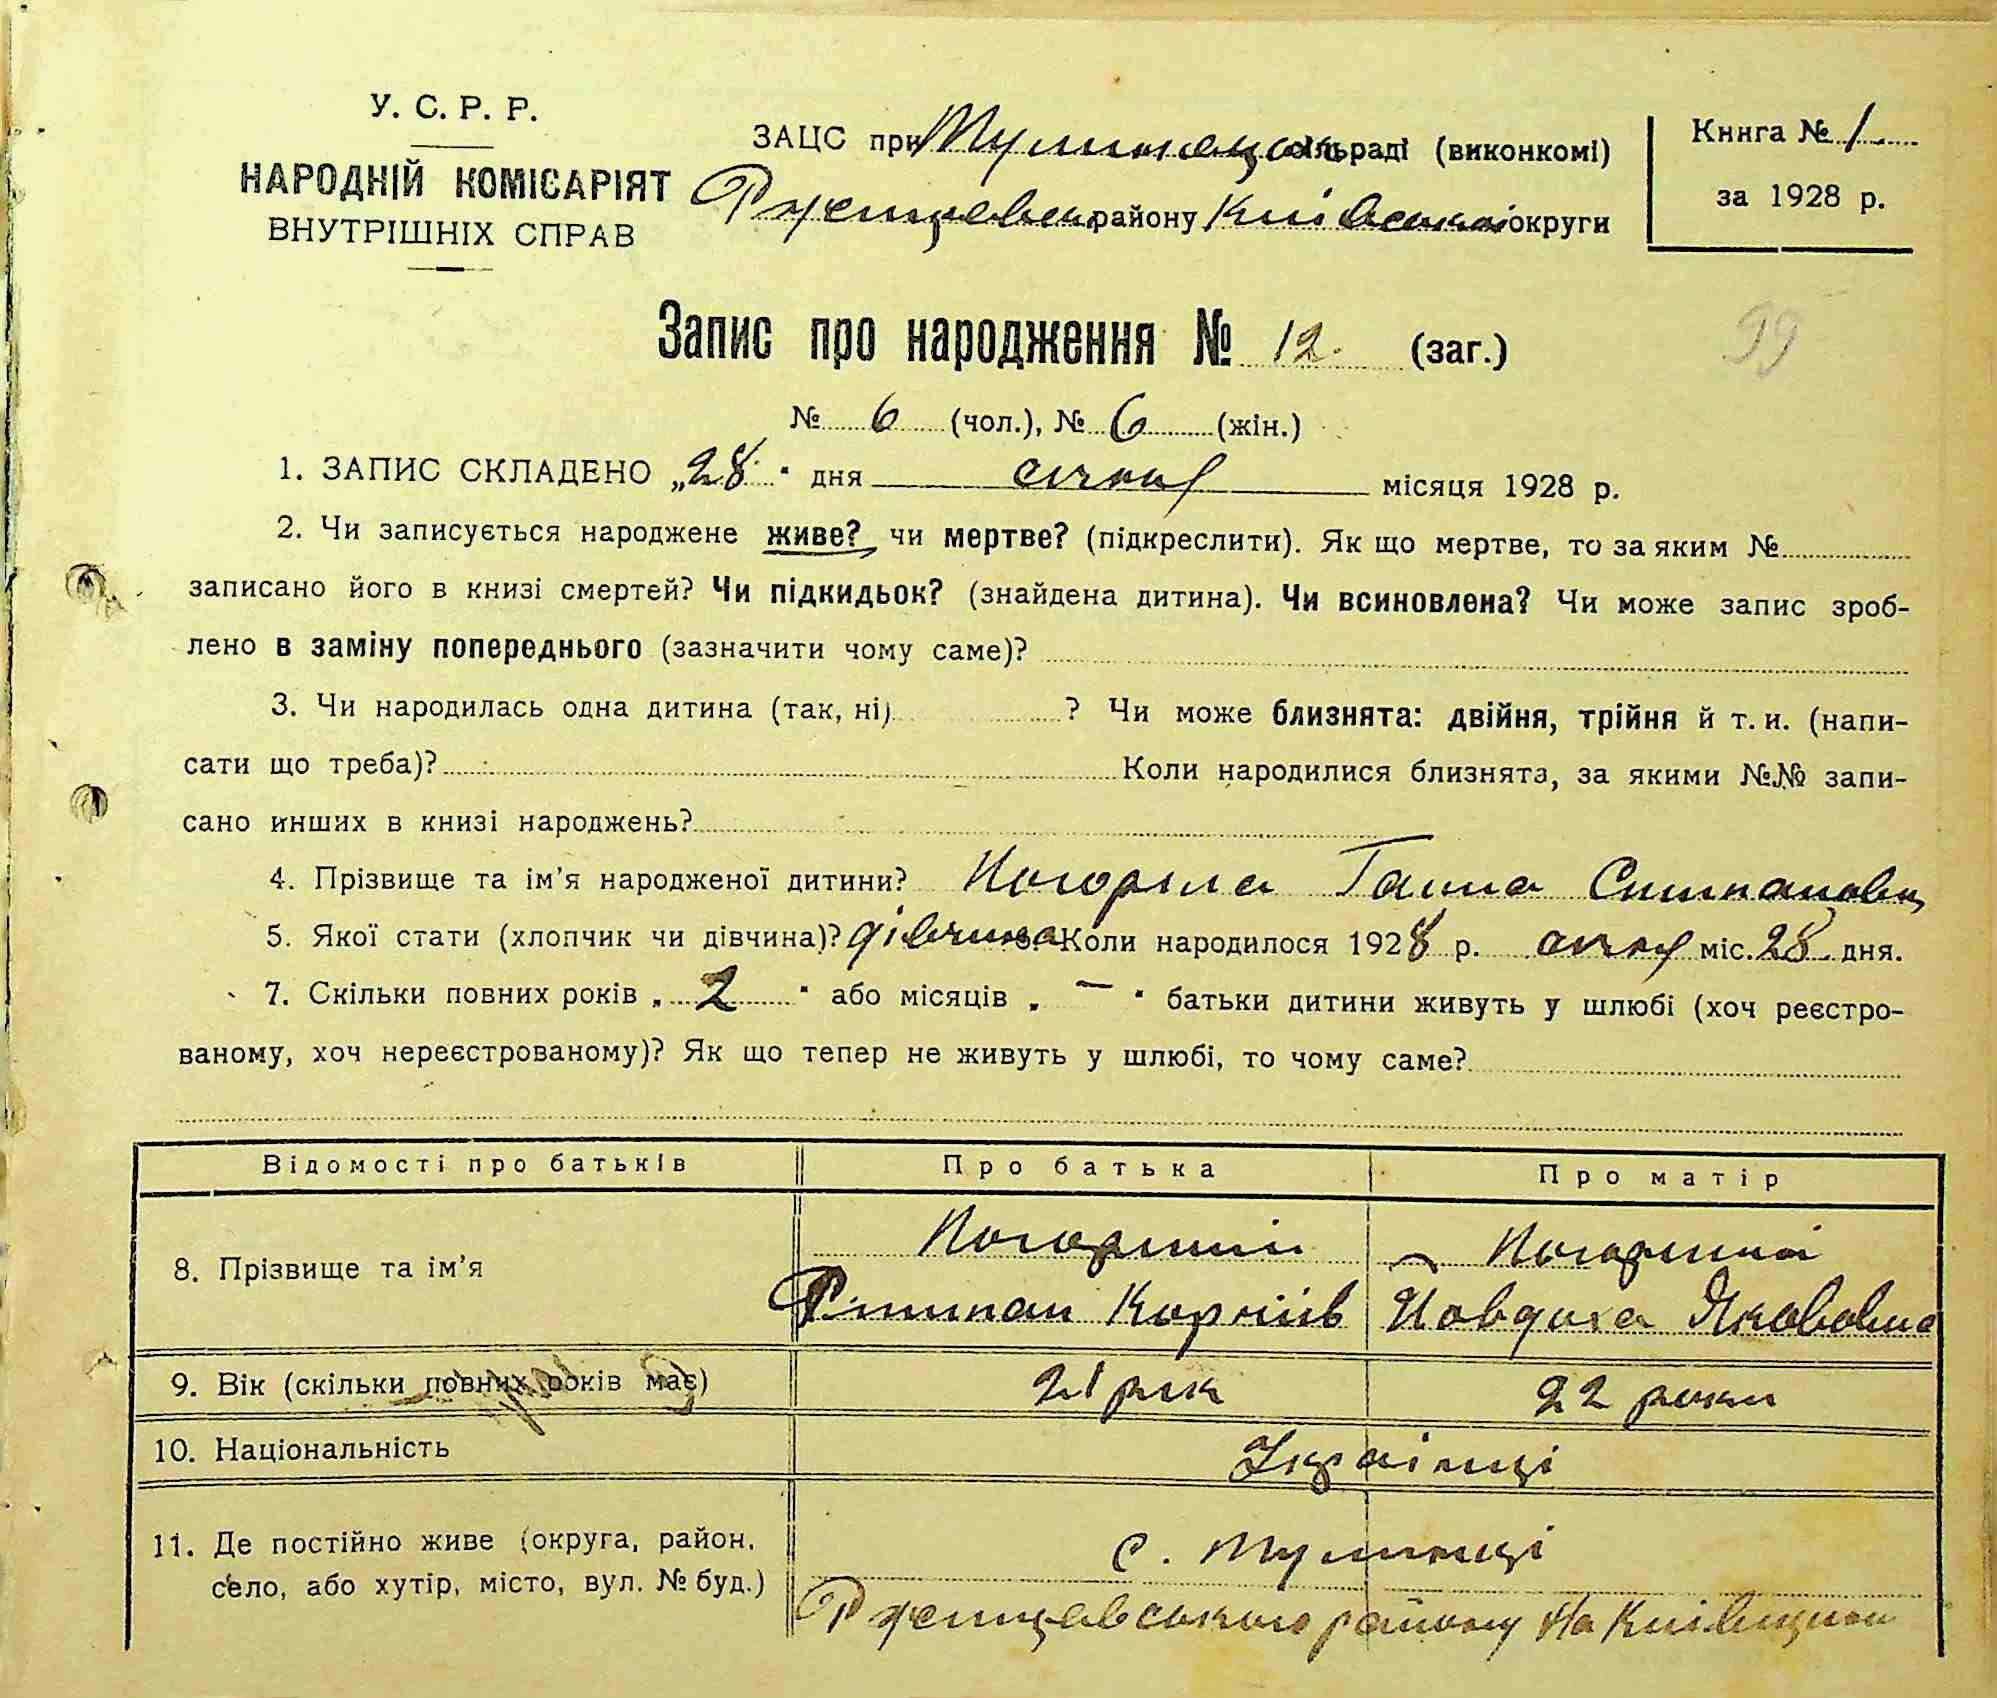 У. С. Р. Р.
НАРОДНІЙ КОМІСАРІЯТ
ВНУТРІШНІХ СПРАВ
ЗАЦС при Тулинецк сільраді (виконкомі)
Ржищевськ району Київської округи
Книга № 1
за 1928 р.
Запис про народження № 12. (заг.)
99
№ 6 (чол.), № 6 (жін.)
1. ЗАПИС СКЛАДЕНО „28" дня січня місяця 1928 р.
2. Чи записується народжене живе? чи мертве? (підкреслити). Як що мертве, то за яким №
записано його в книзі смертей? Чи підкидьок? (знайдена дитина). Чи всиновлена? Чи може запис зроб-
лено в заміну попереднього (зазначити чому саме)?
3. Чи народилась одна дитина (так, ні) ? Чи може близнята: двійня, трійня й т. и. (напи-
сати що треба)? Коли народилися близнята, за якими №№ запи-
сано инших в книзі народжень?
4. Прізвище та ім'я народженої дитини? Погоріла Ганна Степановн
5. Якої стати (хлопчик чи дівчина)? дівчина Коли народилося 1928 р. січня міс. 28 дня.
7. Скільки повних років „ 2 " або місяців „ — " батьки дитини живуть у шлюбі (хоч реєстро-
ваному, хоч нереєстрованому)? Як що тепер не живуть у шлюбі, то чому саме?
Відомості про батьків Про батька Про матір
8. Прізвище та ім'я
Погорілий Погоріла
Степан Корніїв Йовдоха Якововна
9. Вік (скільки повних років має) 21 рік 22 роки
10. Національність Українці
11. Де постійно живе (округа, район,
село, або хутір, місто, вул. № буд.)
с. Тулинці
Ржищевського району на Київщині